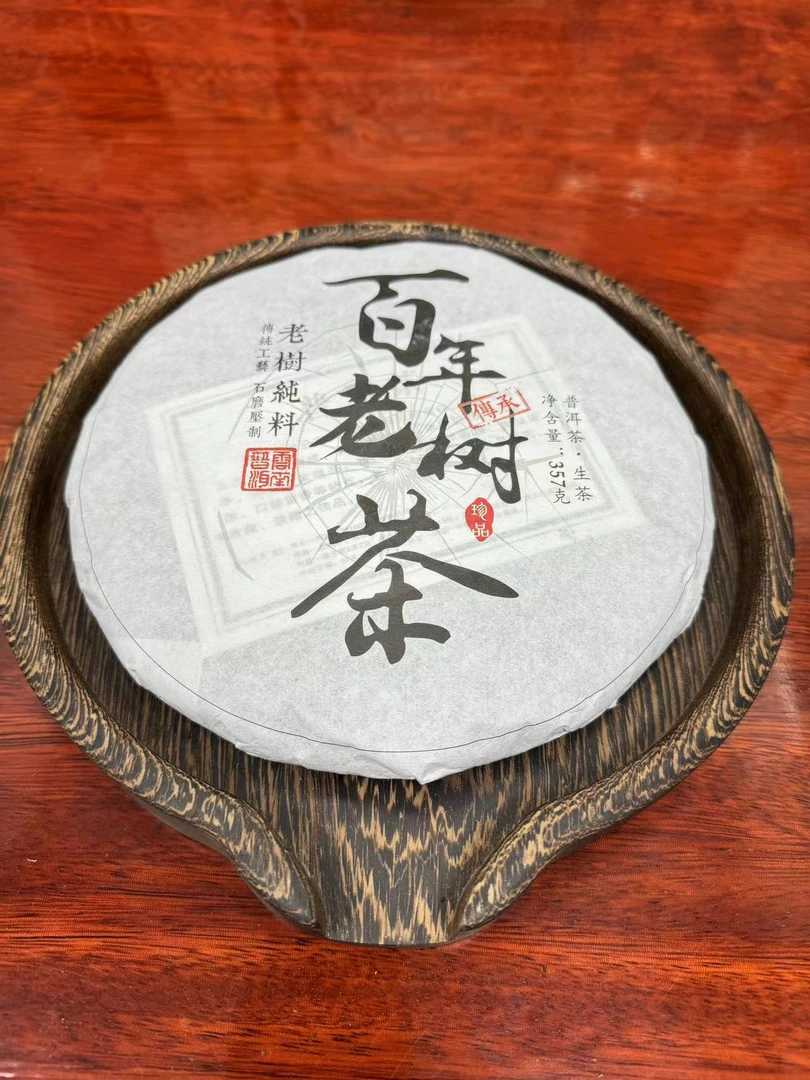 百年老树茶
傳承
珍品
普洱茶·生茶
净含量：357克
老樹純料
傳統工藝 石磨壓制
雲南
普洱